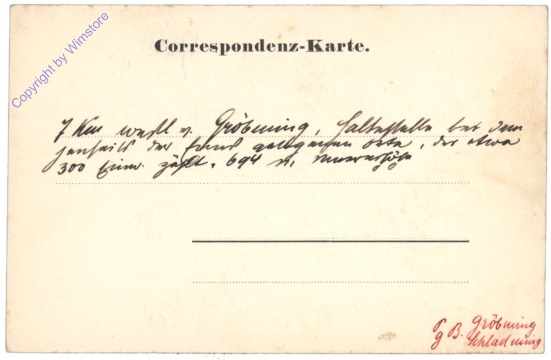 Copyright by Wimstore
Correspondenz-Karte.
7 Km westl v. Gröbming, Haltestelle bei dem
jenseits der Enns gelegenen Orte, der etwa
300 Einw. zählt. 694 m
B. Gröbming
Schladming